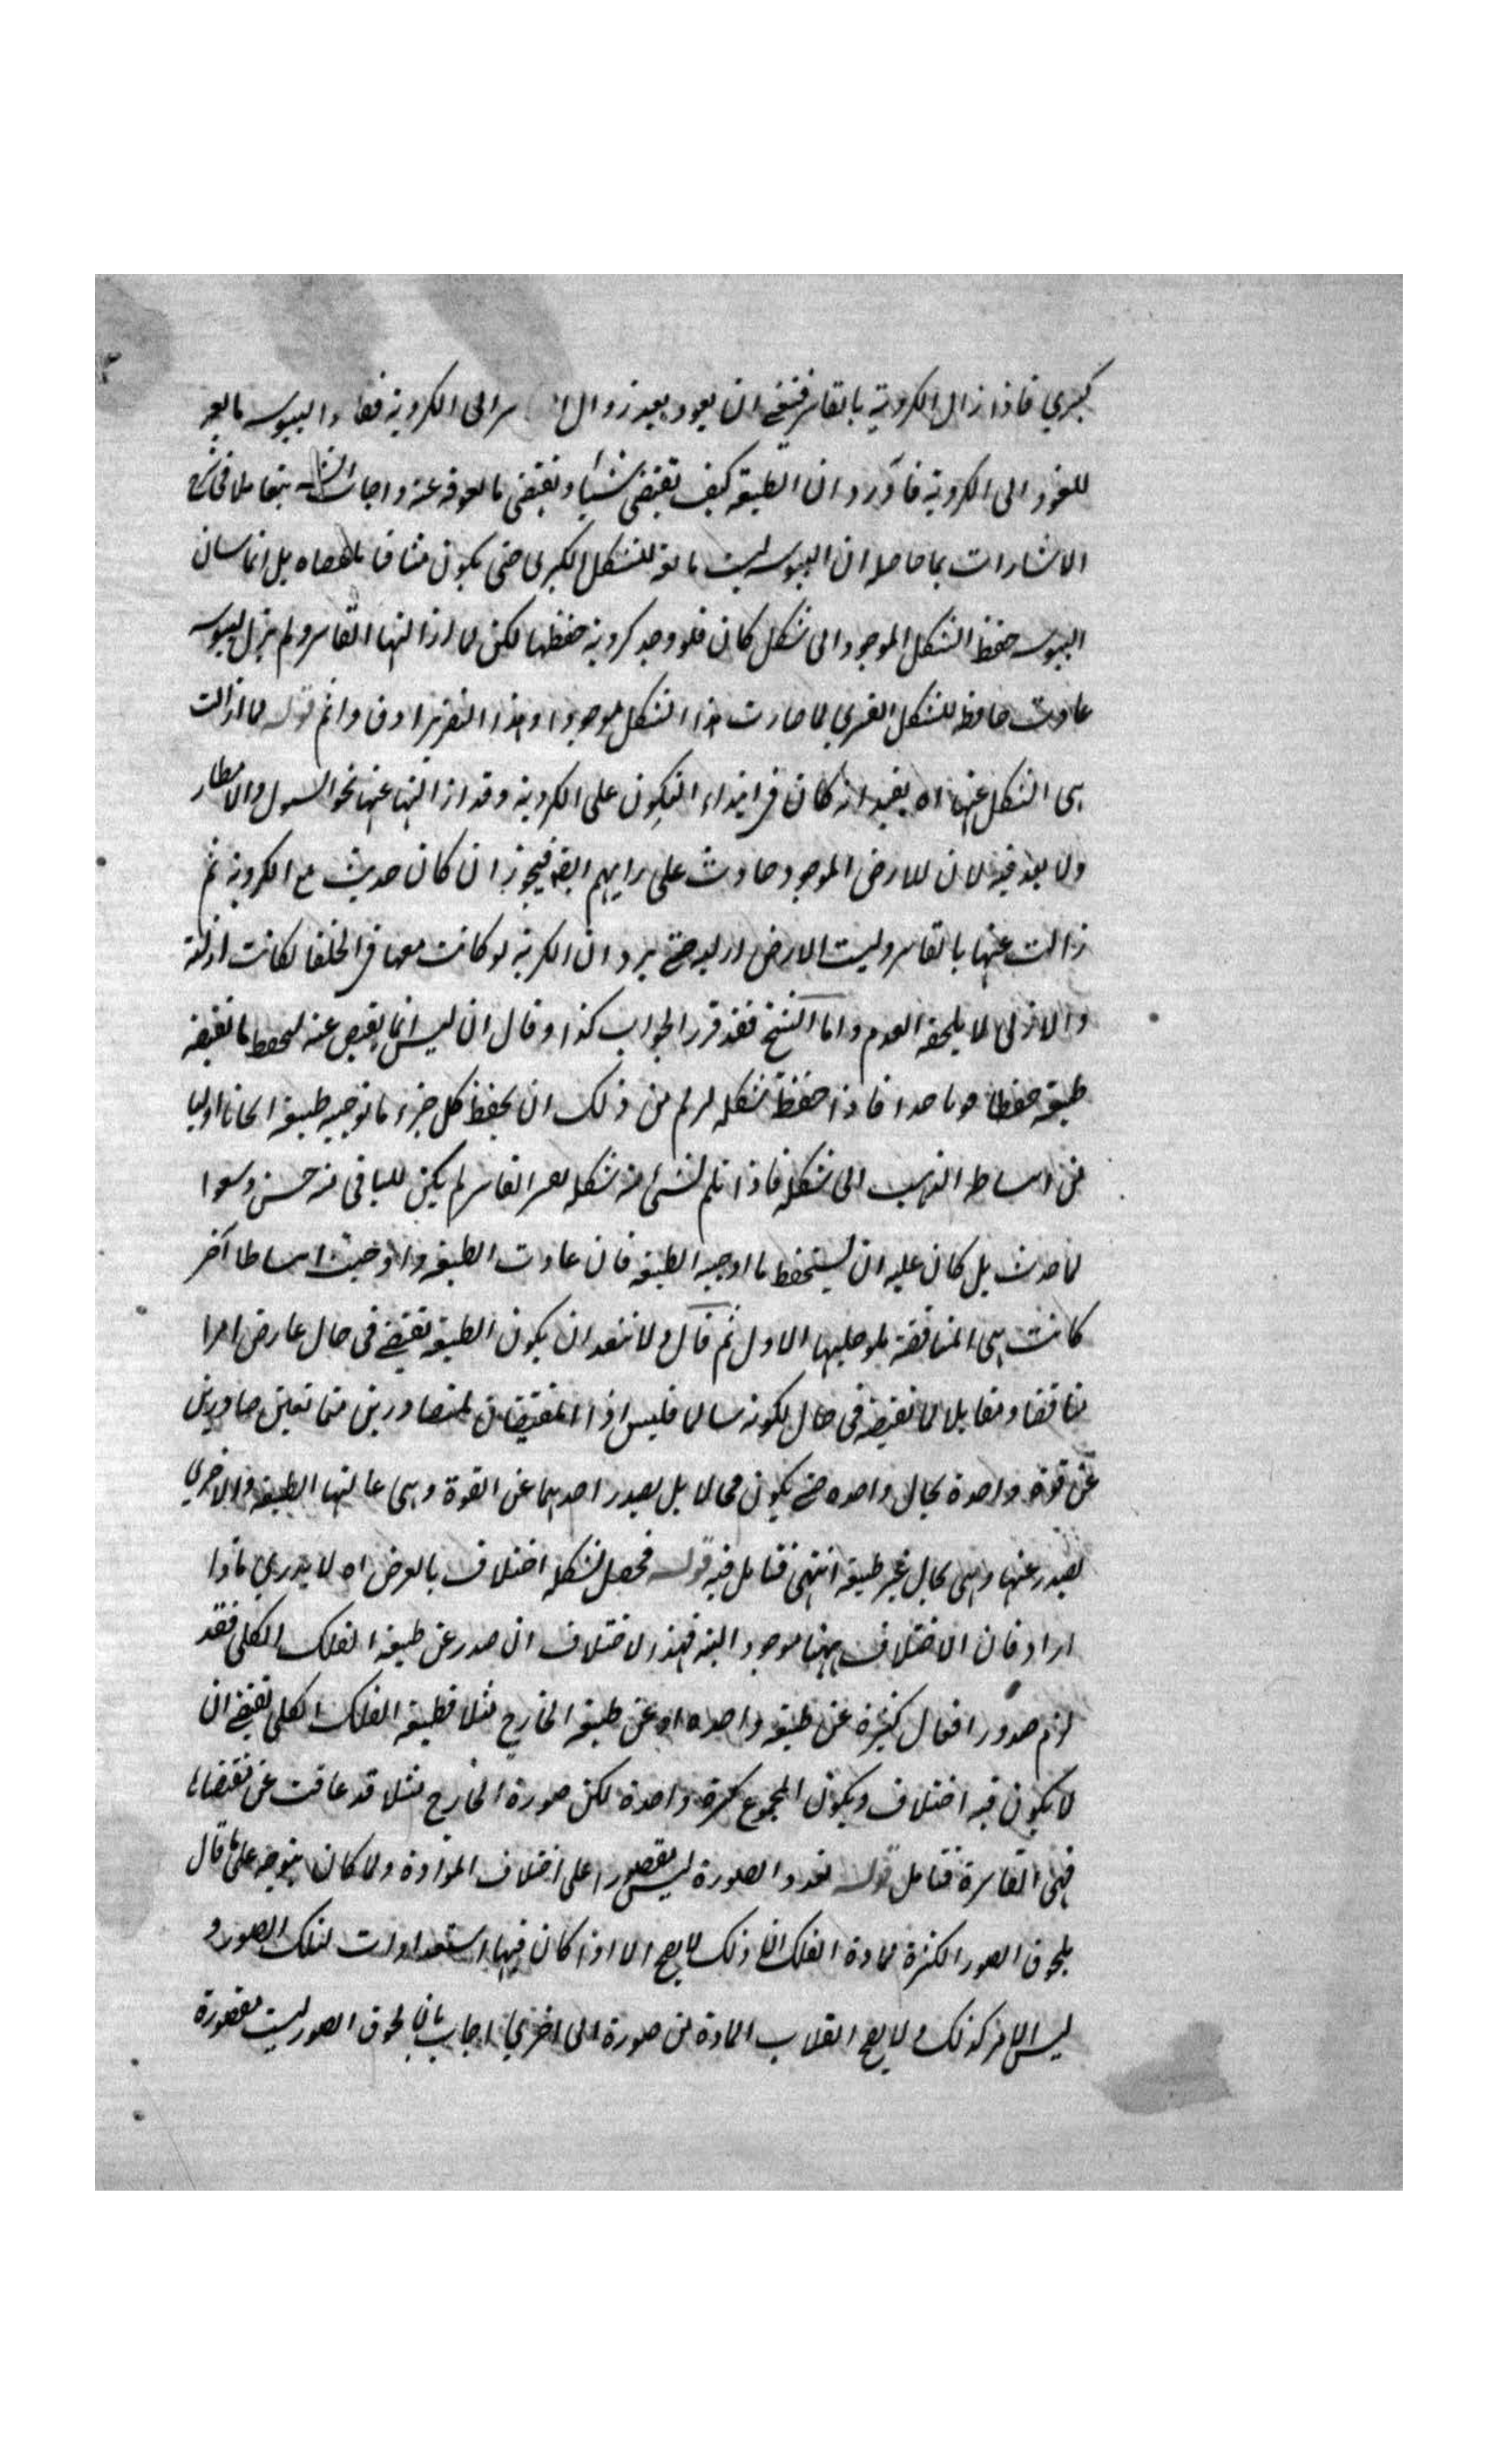 كبرى فاذا زال الكروية بالقاسر فينبغي ان يعود بعد زوال سر الى الكروية فقط واليبوسه مانعه
للعود الى الكروية فاورد ان الطبيعة كيف تقتضى شيئا وتقتضى ما يعوقه عنه واجاب في شرح
الاشارات بما حاصله ان اليبوسه ليست مانعة للشكل الكرى حتى يكون منافيا بل انما شان
اليبوسه حفظ الشكل الموجود اى شكل كان فلو وجد كروية حفظها لكن لما ازالتها القاسر ولم يزل اليبوسه
عادت حافظه للشكل القسرى لما صارت هذا الشكل موجودا وهذا التقرير اوفى واتم قوله لما ازالت
هى الشكل عنها اه يفيد انه كان فى ابتداء التكون على الكروية وقد ازالتها عنها نحو السيول والامطار
ولا بعد فيه لان الارض الموجود حادث على رايهم ايضا فيجوز ان كان حدثت مع الكروية ثم
زالت عنها بالقاسر وليست الارض ازليه حتى يرد ان الكرية لو كانت معها فى الخلقة لكانت ازلية
والازلى لا يلحقه العدم واما الشيخ فقد قرر الجواب كذا وقال ان ليس انما عنه ليحفظ ما تقتضيه
طبيعة حفظا فاذا حفظ شكله لزم من ذلك ان يحفظ كل جزء ما توجبه طبيعة
من الى شكله فاذا ثلم شئ من شكله القاسر لم يكن للباقى منه
ما حدث بل كان عليه ان يستحفظ ما اوجبه الطبيعة فان عادت الطبيعة واوجبت انبساطا آخر
كانت هى المناقضة الاول ثم قال ولا ان يكون الطبيعة تقتضى فى حال عارض امرا
مناقضا ومقابلا لما تقتضيه فى حال لكونه سالما فليس اذا المقتضيان صادرين
عن قوة واحدة بحال واحده حتى يكون محالا بل يصدر احدهما عن القوة وهى على حالتها الطبيعية والاخرى
يصدر عنها وهى بحال غير طبيعية انتهى فتامل فيه قوله فحصل لشكله اختلاف بالعرض اه لا يدرى ماذا
اراد فان الاختلاف ههنا موجود البته فهذا الاختلاف ان صدر عن طبيعة الفلك الكلى فقد
لزم صدور افعال كثيرة عن طبيعة واحده او عن طبيعة الخارج مثلا فطبيعة الفلك الكلى تقتضى ان
لا يكون فيه اختلاف ويكون المجموع كرة واحدة لكن صورة الخارج مثلا قد عاقت عن مقتضاها
فهى القاسرة فتامل قوله تعدد الصورة ليس مقصورا على اختلاف المواد ولما كان يتوجه على ما قال
بلحوق الصور الكثيرة لمادة الفلك ان ذلك لا يصح الا اذا كان فيها استعدادات لتلك الصور و
ليس الامر كذلك ولا يصح انقلاب المادة من صورة الى اخرى اجاب بان لحوق الصور ليست مقصورة